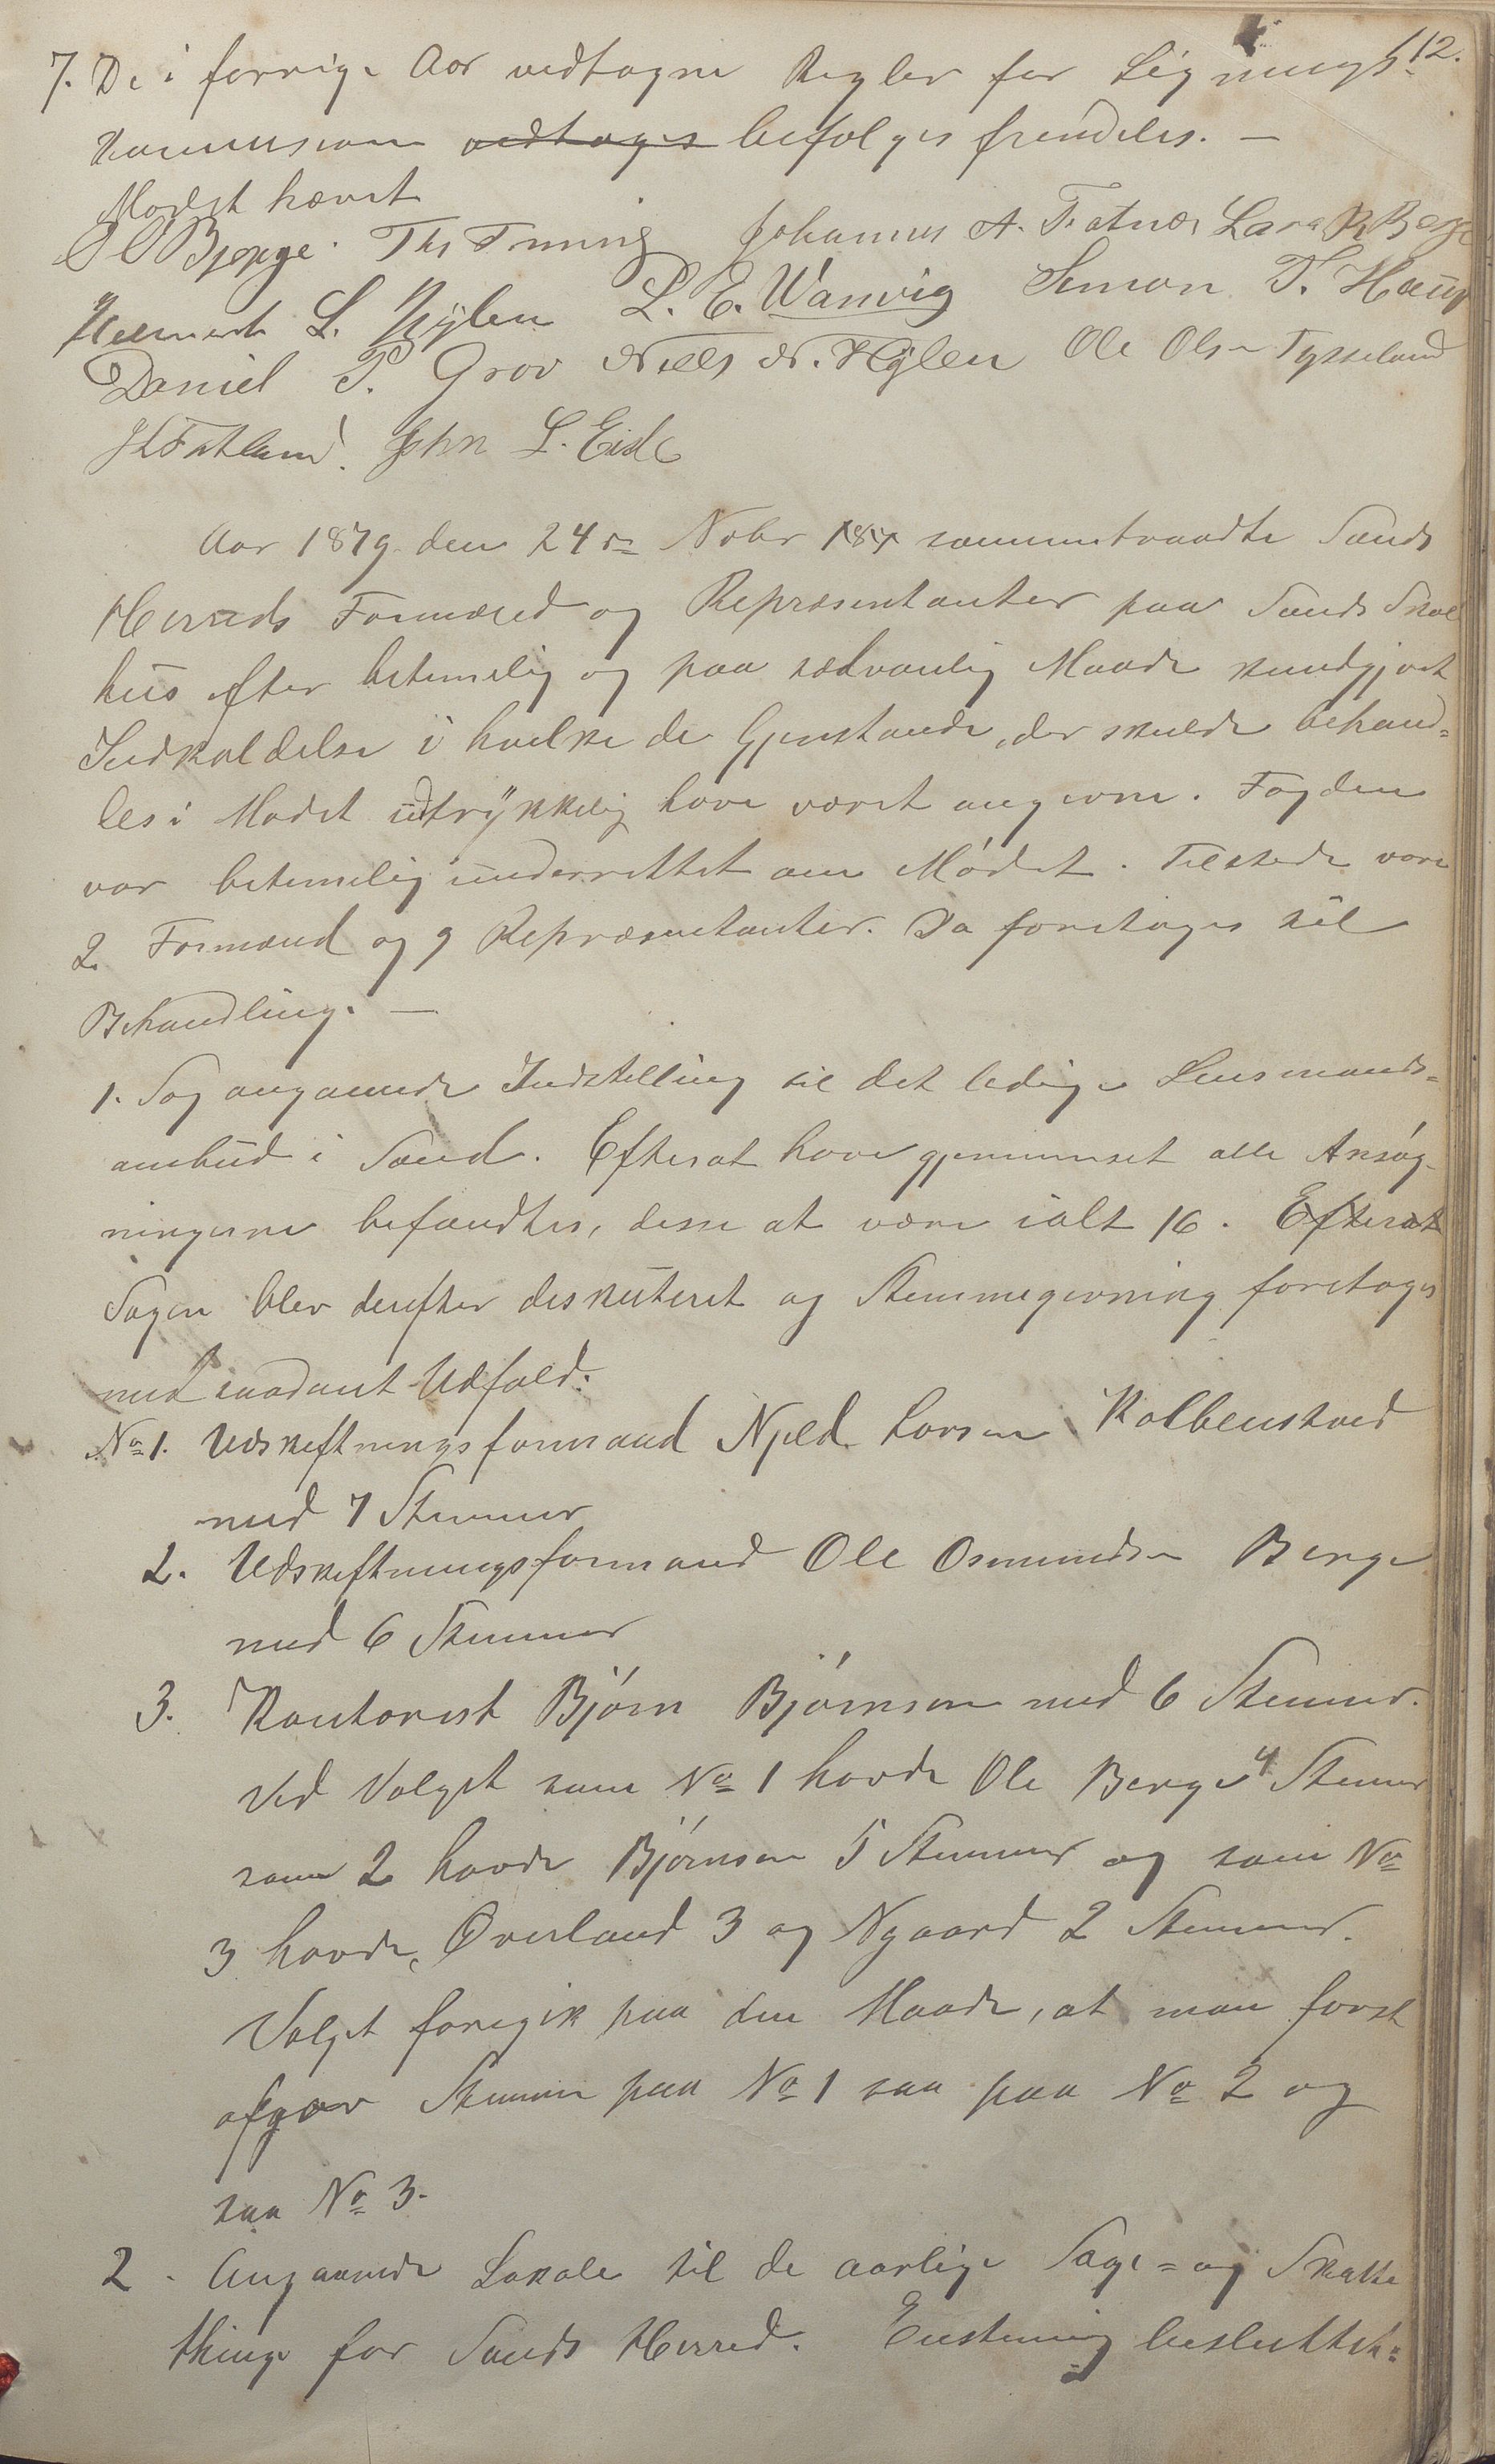 112.
7. De i forrige Aar vedtagne Regler for Lignings
kommissionen vedtages befølges fremdeles. —
Mødet hævet
O O Bjerge. Ths Truning Johannes A. Lars R Berge
L. Hylen L. E. Wanvig Simon T. Haug
Daniel P. Grov Niels N. Hylen Ole Olsen Tysseland
Fatland. John L. Eide
Aar 1879 den 24de Nobr 187 sammentraadte Sands
Herreds Formænd og Repræsentanter paa Sands Skole
hus efter betimelig og paa sædvanlig Maade kundgjort
Indkaldelse i hvilke de Gjenstande, der skulde behand=
les i Mødet udtrykkelig have været angivne. Fogden
var betimelig underrettet om Mødet. Tilstede vare
2 Formænd og 9 Repræsentanter. Da foretoges til
Behandling. —
1. Sag angaaende Indstilling til det ledige Lensmands=
ombud i Sand. Efterat have gjennemset alle Ansøg-
ningerne befandtes, disse at være ialt 16. Efterat
Sagen blev derefter diskuteret og Stemmegivning foretoges
med saadant Udfald:
No 1. Udskiftningsformand Njeld Larsen Kolbenstved
med 7 Stemmer
2. Udskiftningsformand Ole Osmundsen Berge
med 6 Stemmer
3. Kontorist Bjørn Bjørnsen med 6 Stemmer.
Ved Valget som No 1 havde Ole Berge 4 Stemmer
som 2 havde Bjørnsen 5 Stemmer og som No
3 havde Øverland 3 og Nygaard 2 Stemmer.
Valget foregik paa den Maade, at man først
afgav Stemme paa No 1 saa paa No 2 og
saa No 3.
2. Angaaende Lokale til de aarlige Sage= og Skatte
thinge for Sands Herred. Enstemmig besluttet: